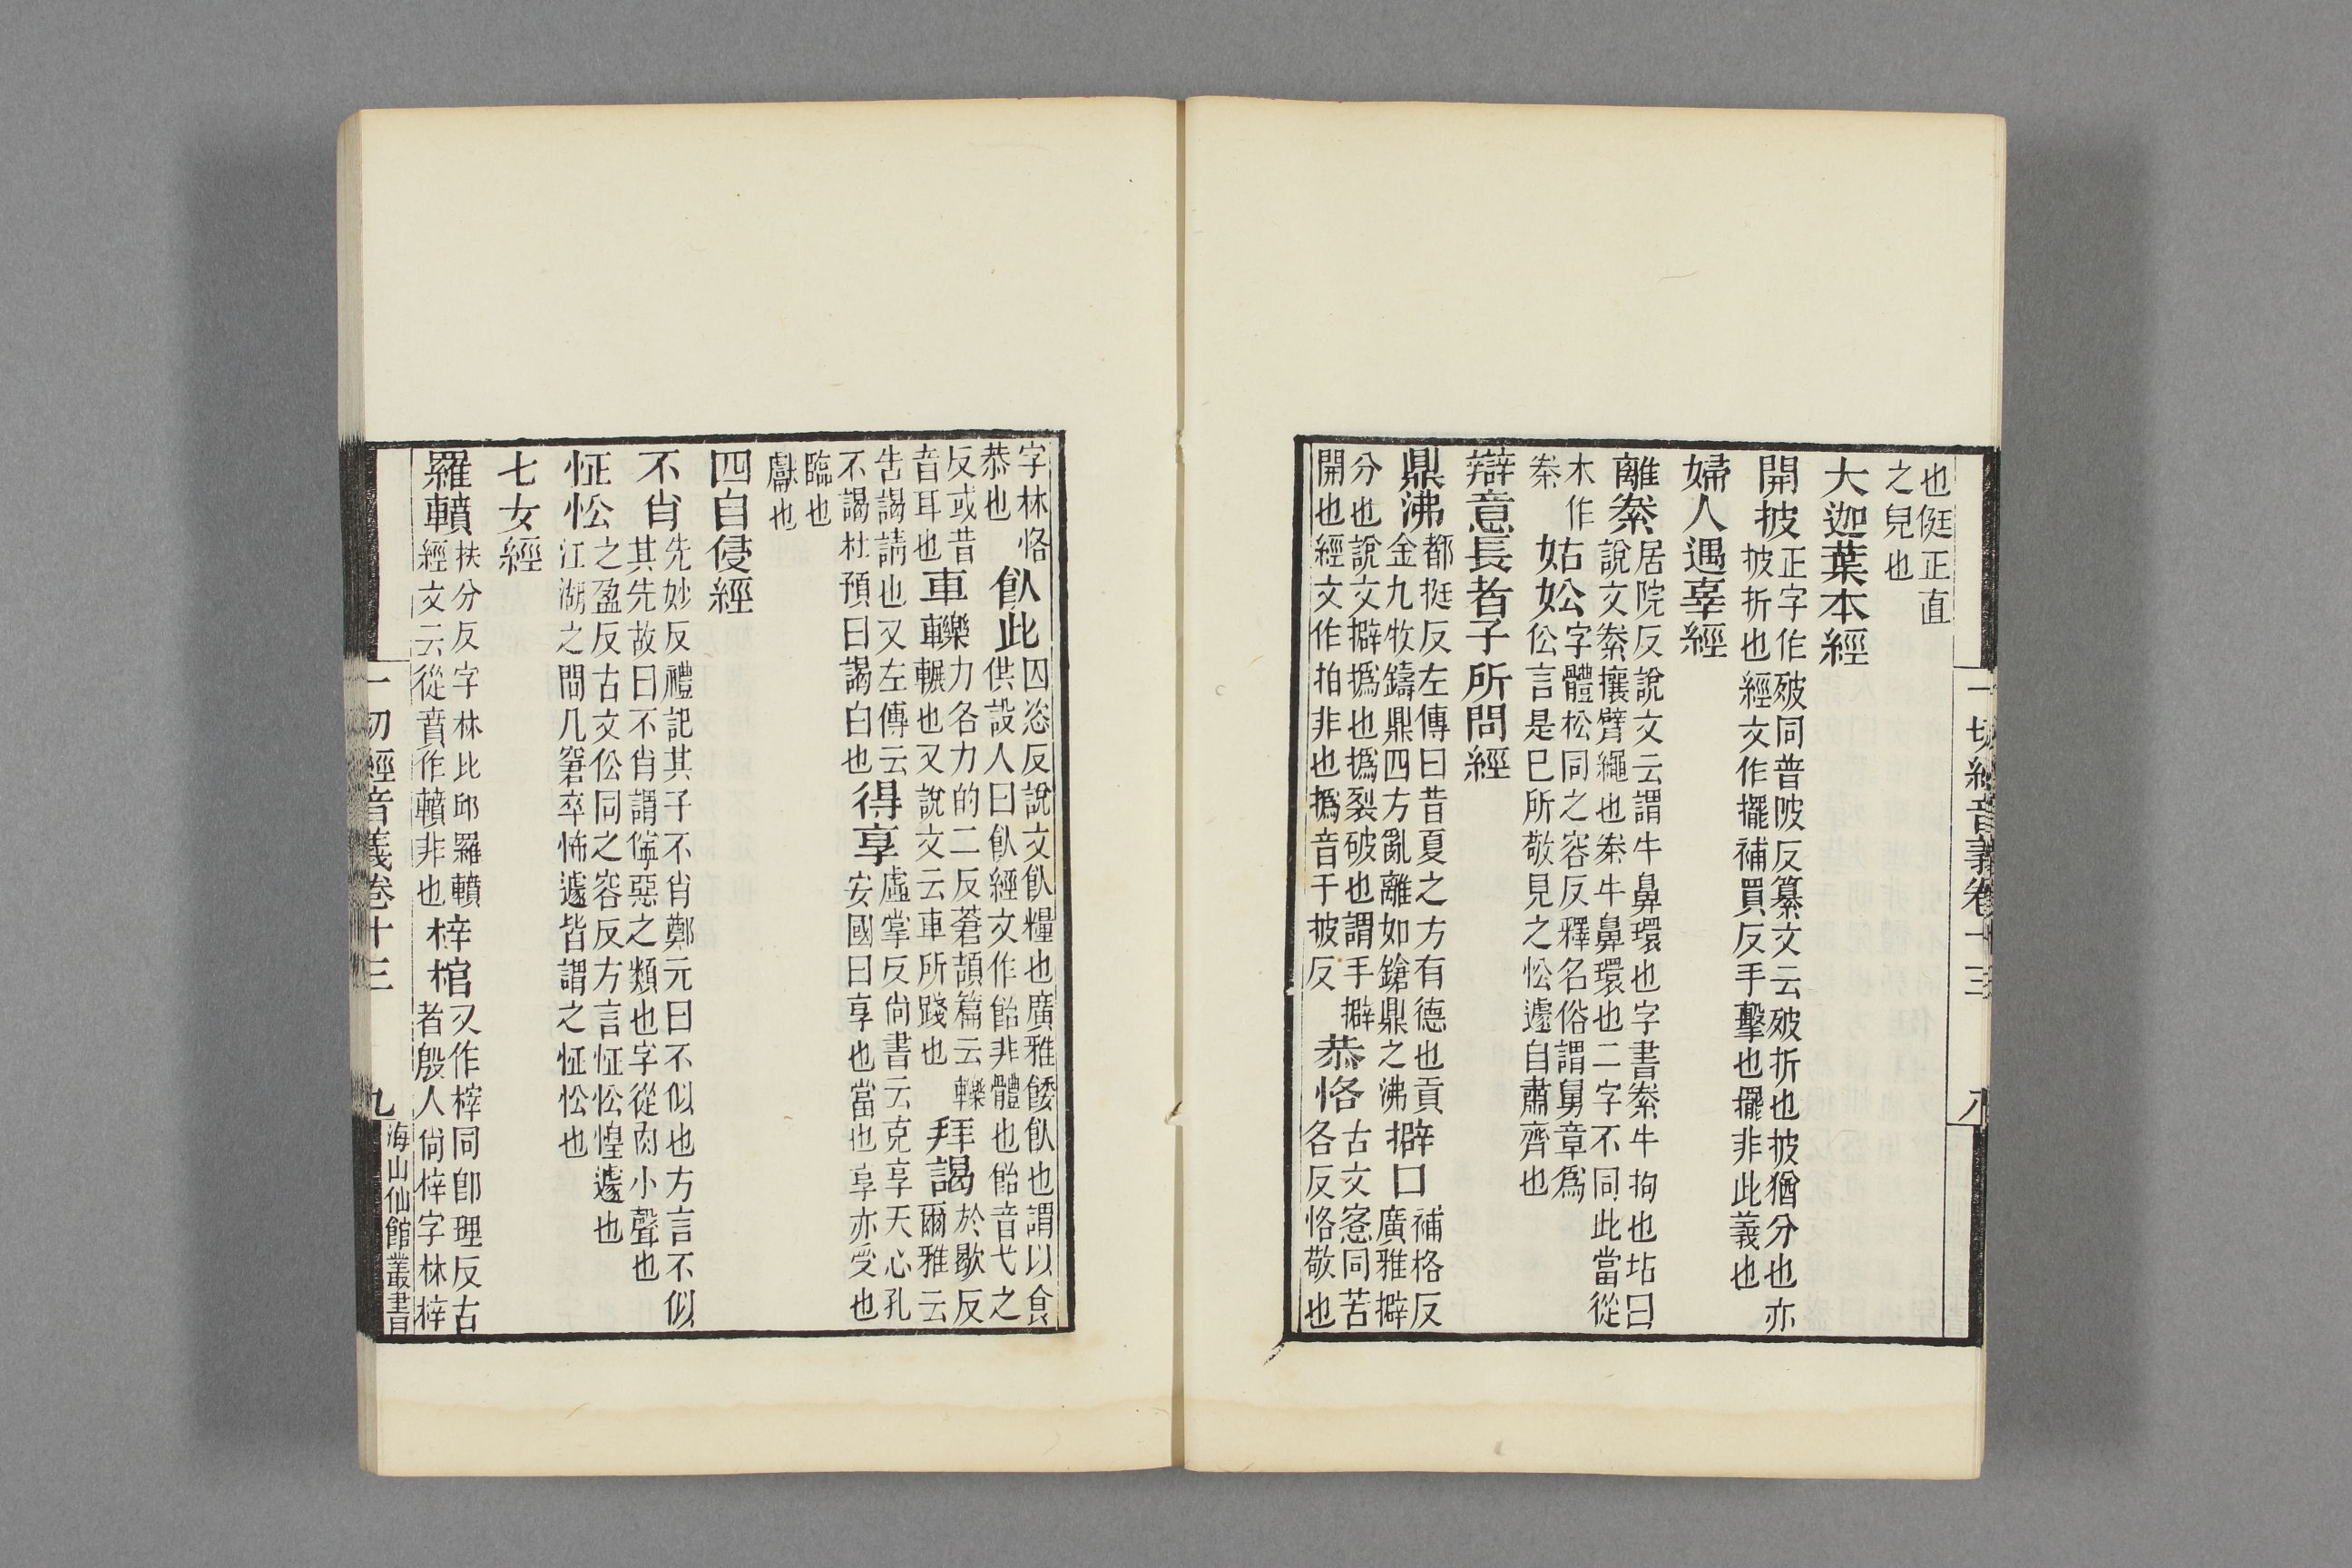 也侹正直
之皃也
大迦葉本經
開披正字作㱟同普陂反纂文云㱟折也披猶分也亦
披折也經文作擺補買反手擊也擺非此義也
婦人遇辜經
離桊居院反說文云謂牛鼻環也字書桊牛拘也坫曰
說文桊攘臂繩也桊牛鼻環也二字不同此當從
木作
桊
姑妐字體松同之容反釋名俗謂舅章爲
妐言是已所敬見之忪遽自肅齊也
辯意長者子所問經
鼎沸都挺反左傳曰昔夏之方有德也貢
金九牧鑄鼎四方亂離如鎗鼎之沸
擗口補格反
廣雅擗
分也說文擗撝也撝裂破也謂手擗
開也經文作拍非也撝音于披反
恭恪古文愙同苦
各反恪敬也
一切經音義卷十三
八
字林恪
恭也
飤此囚恣反說文飤糧也廣雅餧飤也謂以食
供設人曰飤經文作飴非體也飴音弋之
反或昔
音耳也
車轢力各力的二反蒼頡篇云轢
車輾也又說文云車所踐也
拜謁於歇反
爾雅云
告謁請也又左傳云
不謁杜預曰謁白也
得享虛掌反尙書云克享天心孔
安國曰享也當也享亦受也
臨也
獻也
四自侵經
不肖先妙反禮記其子不肖鄭元曰不似也方言不似
其先故曰不肖謂儜惡之類也字從肉小聲也
怔忪之盈反古文伀同之容反方言怔忪惶遽也
江湖之間凡窘卒怖遽皆謂之怔忪也
七女經
羅轒扶分反字林比邱羅轒
經文云從賁作轒非也
梓棺又作榟同卽理反古
者殷人尙梓字林梓
一切經音義卷十三
九
海山仙館叢書